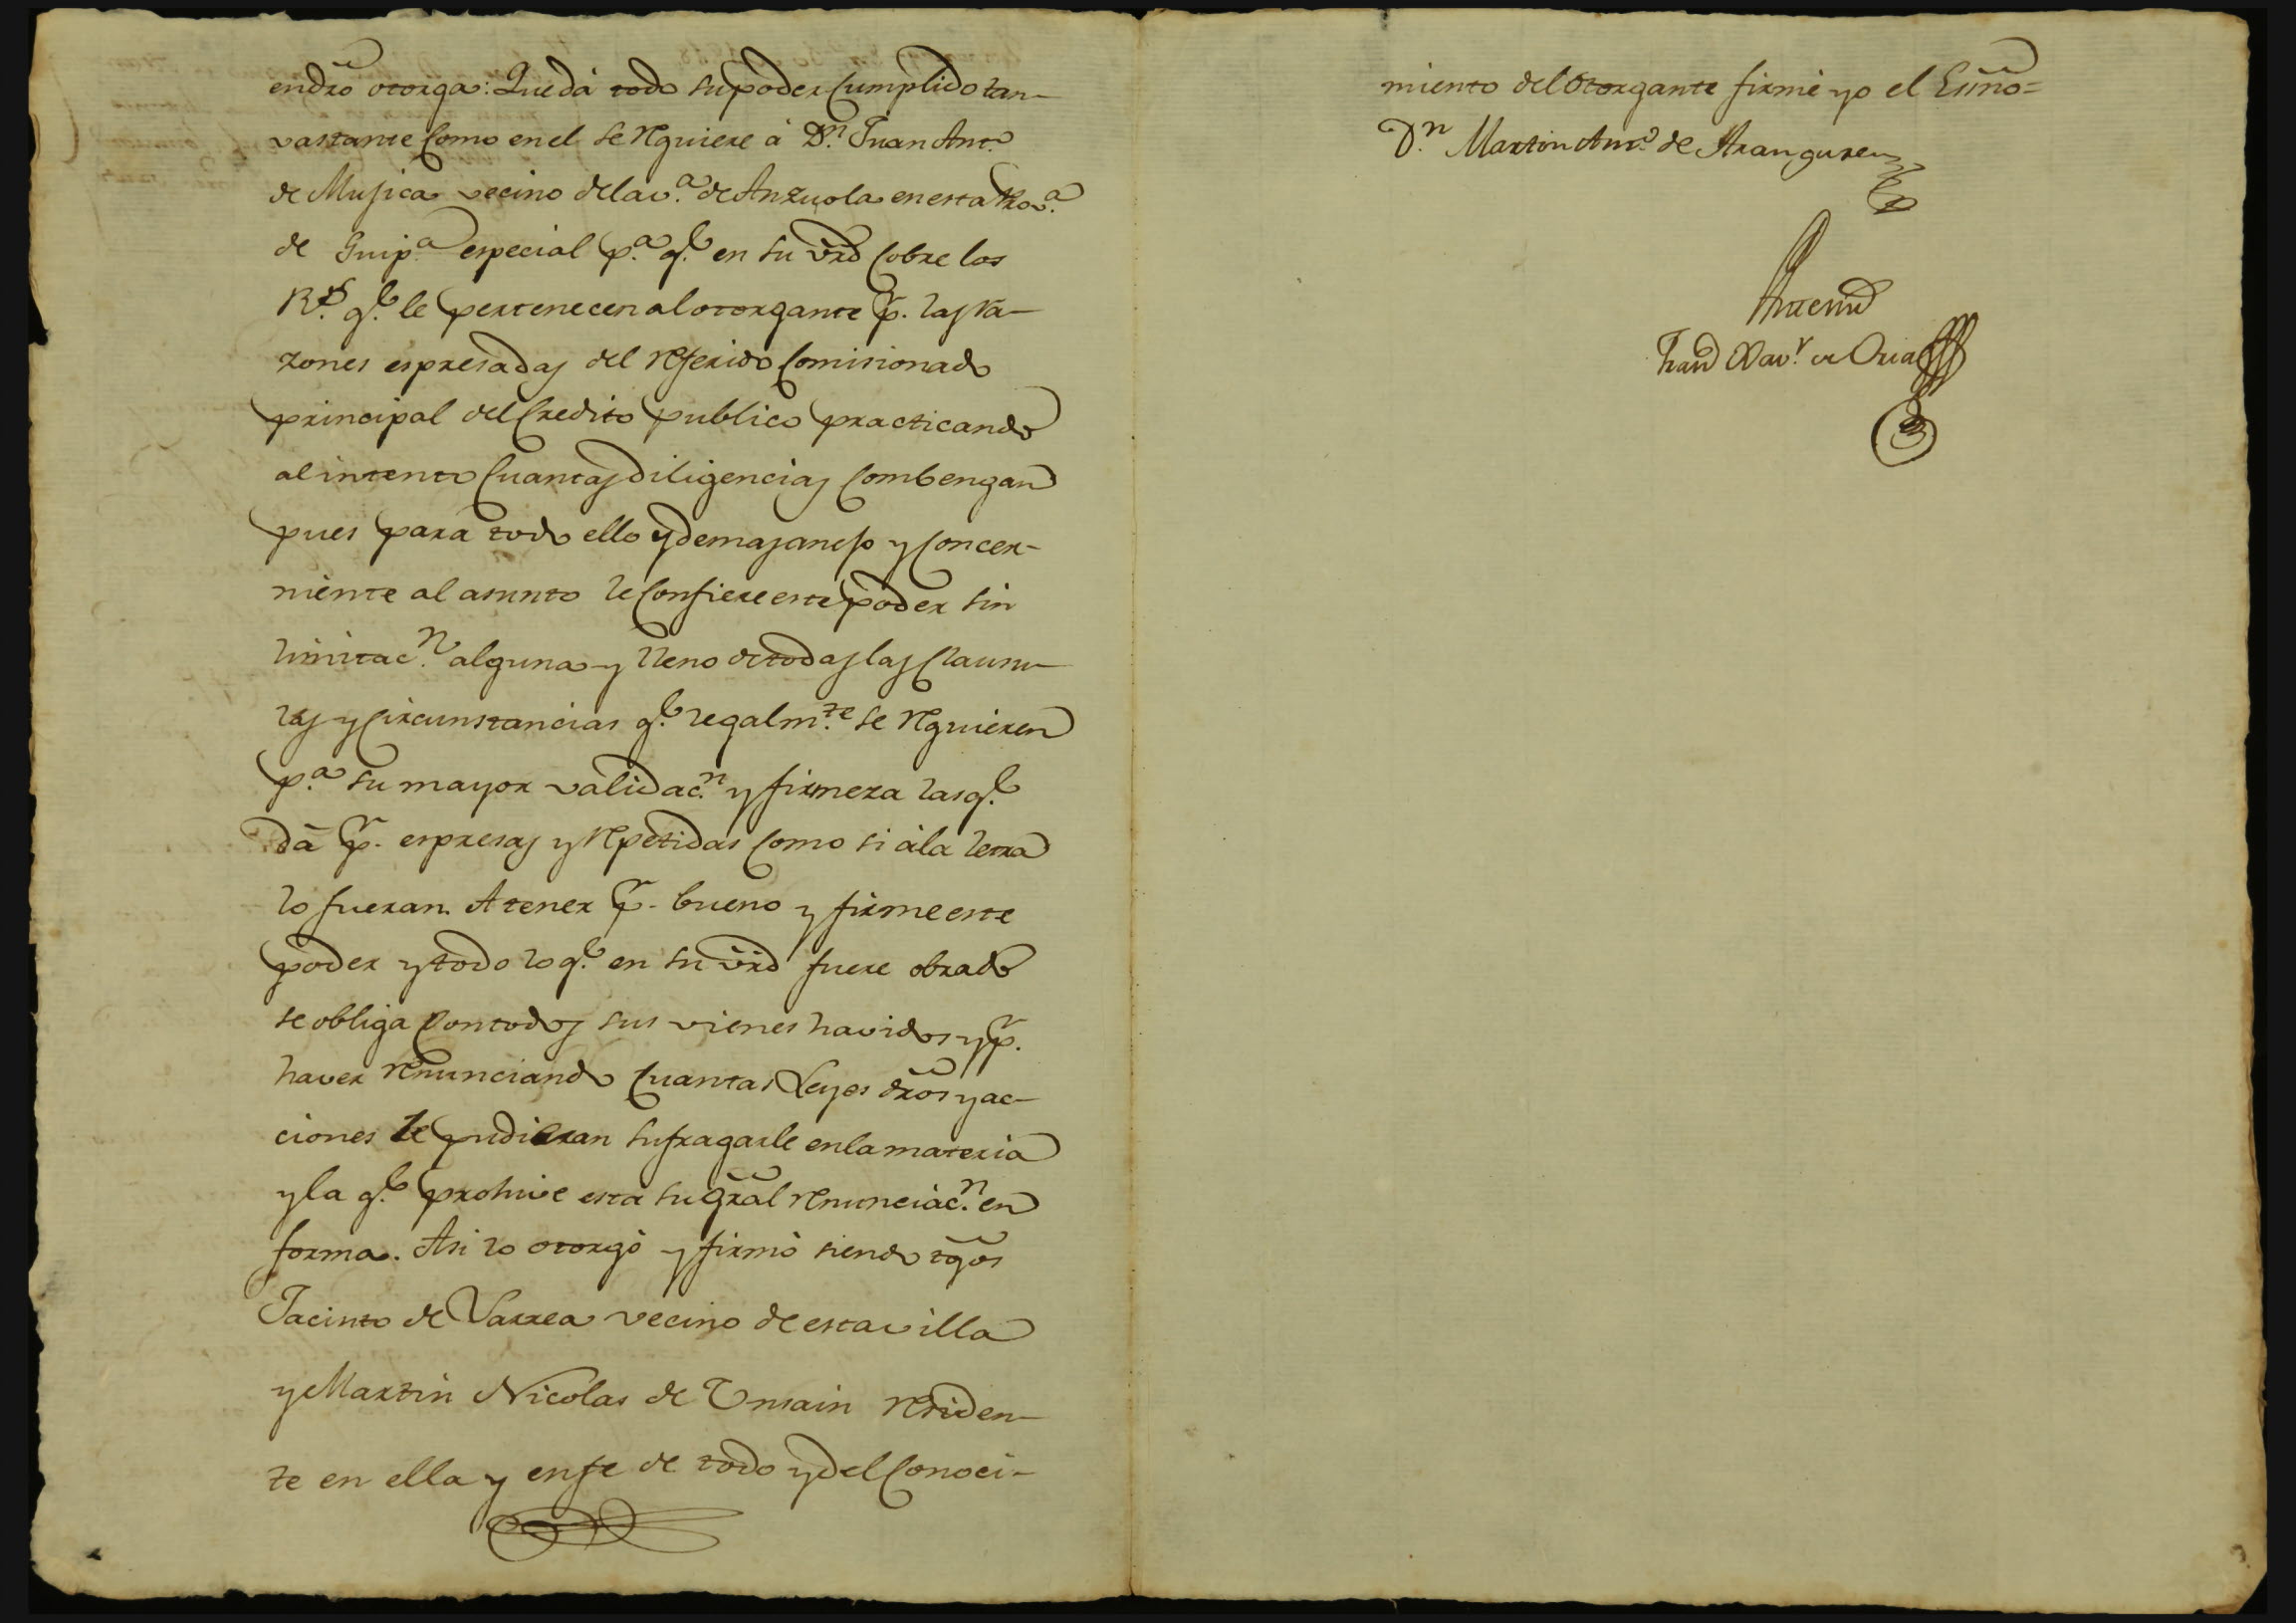 en drõ otorga: Que dá todo su poder Cumplido tan
vastante Como en el se requiere á Dn. Juan Anto.
de Mujica vecino de la va. de Anzuola en esta Prova.
de Guipa. especial pa. qe. en su vrd̃ Cobre los
Rs. qe. le pertenecen al otorgante pr. las ra-
zones espresadas del referido Comisionado
principal del Credito publico practicando
al intento Cuantas diligencias Combengan
pues para todo ello y demas anejo y Concer-
niente al asunto le Confiere este poder sin
limitacn. alguna y lleno de todas las Clausu-
las y Circunstancias qe. legalmte. se requieren
pa. su mayor validacn. y firmeza las qe.
dá pr. espresas y repetidas Como si á la letra
lo fueran. A tener pr. bueno y firme este
poder y todo lo qe. en su vrd̃ fuere obrado
se obliga Con todos sus vienes havidos y pr.
haver renunciando Cuantas Leyes drõs y ac-
ciones le pudieran sufragarle en la materia
y la qe. prohive esta su gral̃ renunciacn. en
forma. Asi lo otorgó y firmó siendo tgõs
Jacinto de Larrea vecino de esta villa
y Martin Nicolas de Unsain residen-
te en ella y en fe de todo y del Conoci-
miento del Otorgante firmé yo el Esnõ=
Dn. Martin Anto. de Aranguren
Antemi
Franco Xavr. de Oria